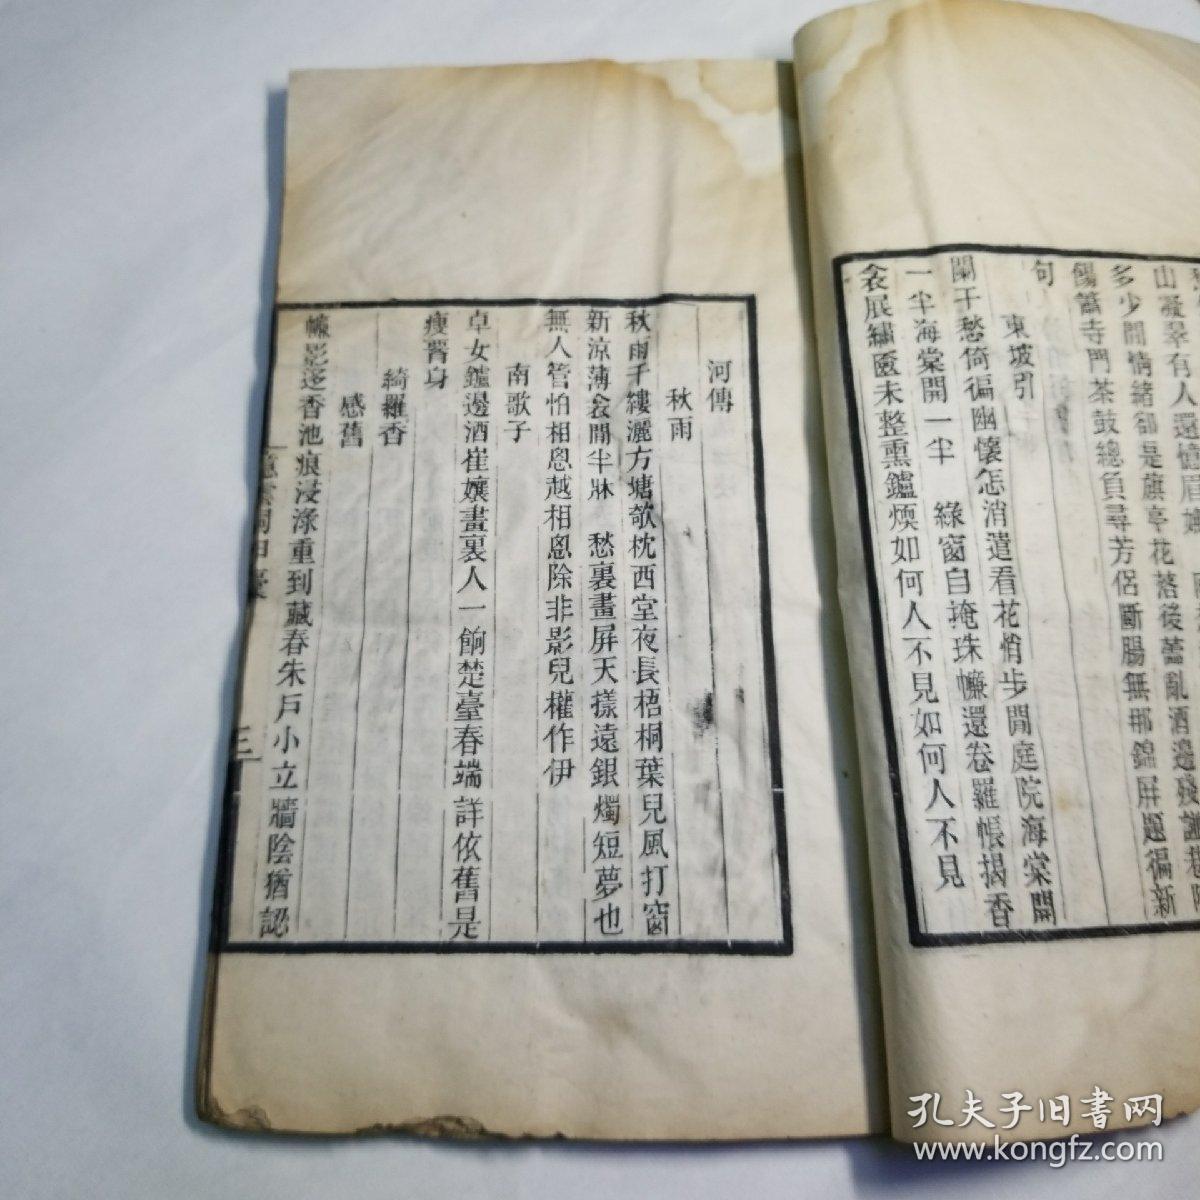 山凝翠有人還憶眉嫵
多少閒情緒卻是旗亭花落後蠹亂酒邊殘譜
觴蕭寺門茶鼓總負尋芳侶斷腸無那錦屏題徧新
句
東坡引
闌干愁倚徧幽懷怎消遣看花悄步閒庭院海棠開
一半海棠開一半 綠窗自掩珠㡘還卷羅帳揭香
衾展繡匳未整熏鑪煗如何人不見如何人不見
河傳
秋雨
秋雨千縷灑方塘欹枕西堂夜長梧桐葉兒風打窗
新涼薄衾閒半牀 愁裏畫屏天㨾遠銀燭短夢也
無人管怕相恩越相恩除非影兒權作伊
南歌子
卓女鑪邊酒崔孃畫裏人一餉楚臺春端詳依舊是
瘦䈂身
綺羅香
感舊
㡘影迻香池痕浸淥重到藏春朱戶小立牆陰猶認
三
孔夫子旧书网
www.kongfz.com